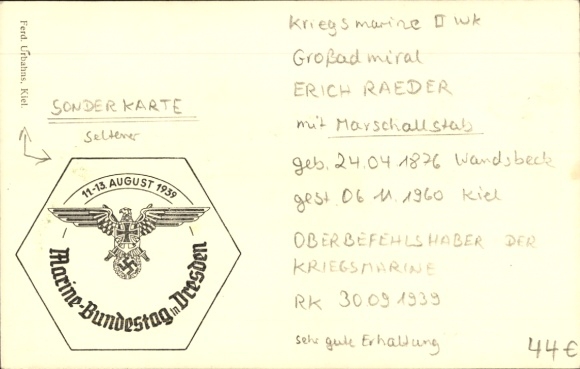 Ferd. Urbahns, Kiel.
SONDERKARTE
seltener
11.-13. AUGUST 1939
Marine-Bundestag in Dresden
Kriegsmarine II WK
Großadmiral
ERICH RAEDER
mit Marschallstab
geb. 24.04 1876 Wandsbeck
gest. 06 11. 1960 Kiel
OBERBEFEHLSHABER DER
KRIEGSMARINE
RK 30.09 1939
sehr gute Erhaltung
44€